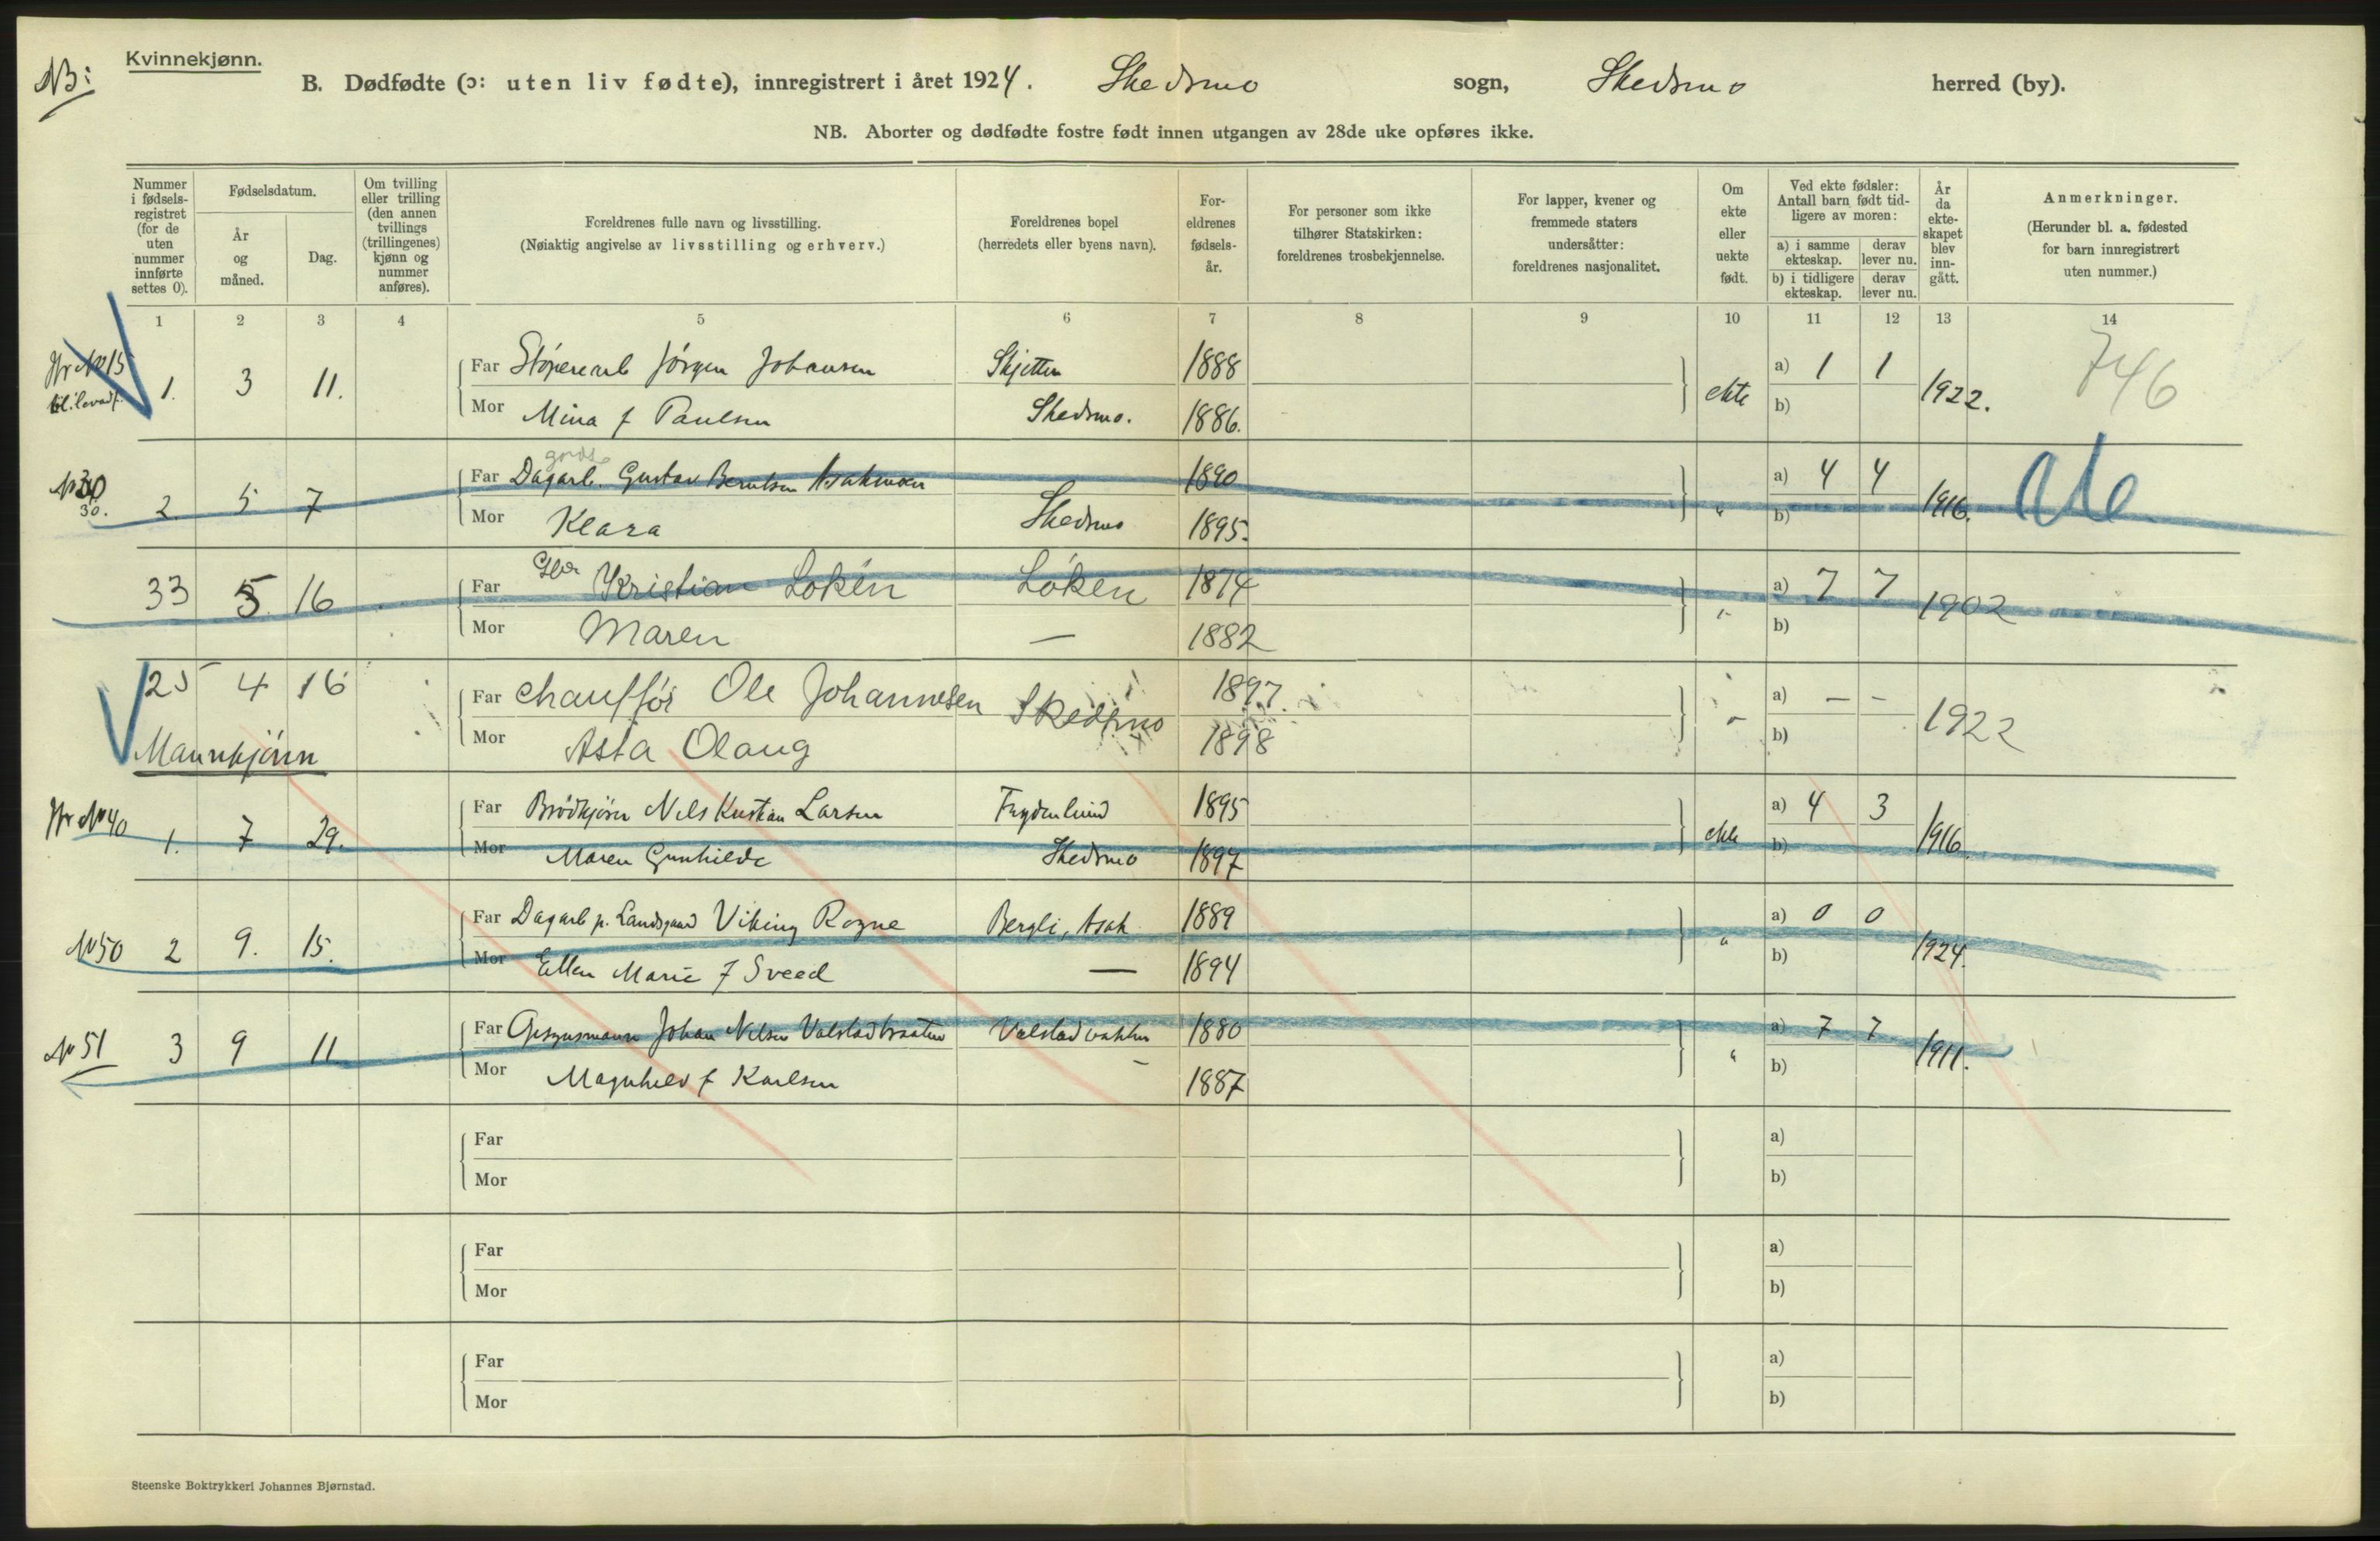 NB:
Kvinnekjønn.
B. Dødfødte (ɔ: uten liv fødte), innregistrert i året 1924. Skedsmo sogn, Skedsmo herred (by).
NB. Aborter og dødfødte fostre født innen utgangen av 28de uke opføres ikke.
Nummer i fødsels-registret (for de uten nummer innførte settes 0).
Fødselsdatum.
År og måned.
Dag.
Om tvilling eller trilling (den annen tvillings (trillingenes) kjønn og nummer anføres).
Foreldrenes fulle navn og livsstilling.
(Nøiaktig angivelse av livsstilling og erhverv.)
Foreldrenes bopel
(herredets eller byens navn).
For-eldrenes fødsels-år.
For personer som ikke tilhører Statskirken: foreldrenes trosbekjennelse.
For lapper, kvener og fremmede staters undersåtter: foreldrenes nasjonalitet.
Om ekte eller uekte født.
Ved ekte fødsler: Antall barn født tid-ligere av moren:
a) i samme ekteskap. derav lever nu.
b) i tidligere ekteskap. derav lever nu.
År da ekte-skapet blev inn-gått.
Anmerkninger.
(Herunder bl. a. fødested for barn innregistrert uten nummer.)
1 2 3 4 5 6 7 8 9 10 11 12 13 14
1. 3 11. Far Jörgen Johansen Skjetten 1888 ekte a) 1 1 1922. 746
Mor Mina f Paulsen Skedsmo. 1886. b)
30. 2. 5 7 Far Dagarb. Gustav Berntsen 1890 " a) 4 4 1916.
Mor Klara Skedsmo 1895. b)
33 5 16 Far Kristian Loken Löken 1874 " a) 7 7 1902
Mor Maren — 1882 b)
25 4 16 Far Chauffør Ole Johannesen Skedsmo 1897. " a) — — 1922
Mor Asta Olaug 1898 b)
Mannkjönn
No 40 1. 7 29. Far Brödkjörer Nils Kristian Larsen Frydenlund 1895 ekte a) 4 3 1916.
Mor Maren Gunhilde Skedsmo 1897 b)
No 50 2 9. 15. Far Dagarb p. Landsgaard Viking Rogne Bergli, Asak 1889 " a) 0 0 1924.
Mor Ellen Marie f Sveed — 1894 b)
No 51 3 9 11 Far Johan Nilsen Valstadbraaten 1880 " a) 7 7 1911.
Mor Magnhild f Karlsen — 1887 b)
Far a)
Mor b)
Far a)
Mor b)
Far a)
Mor b)
Steenske Boktrykkeri Johannes Bjørnstad.